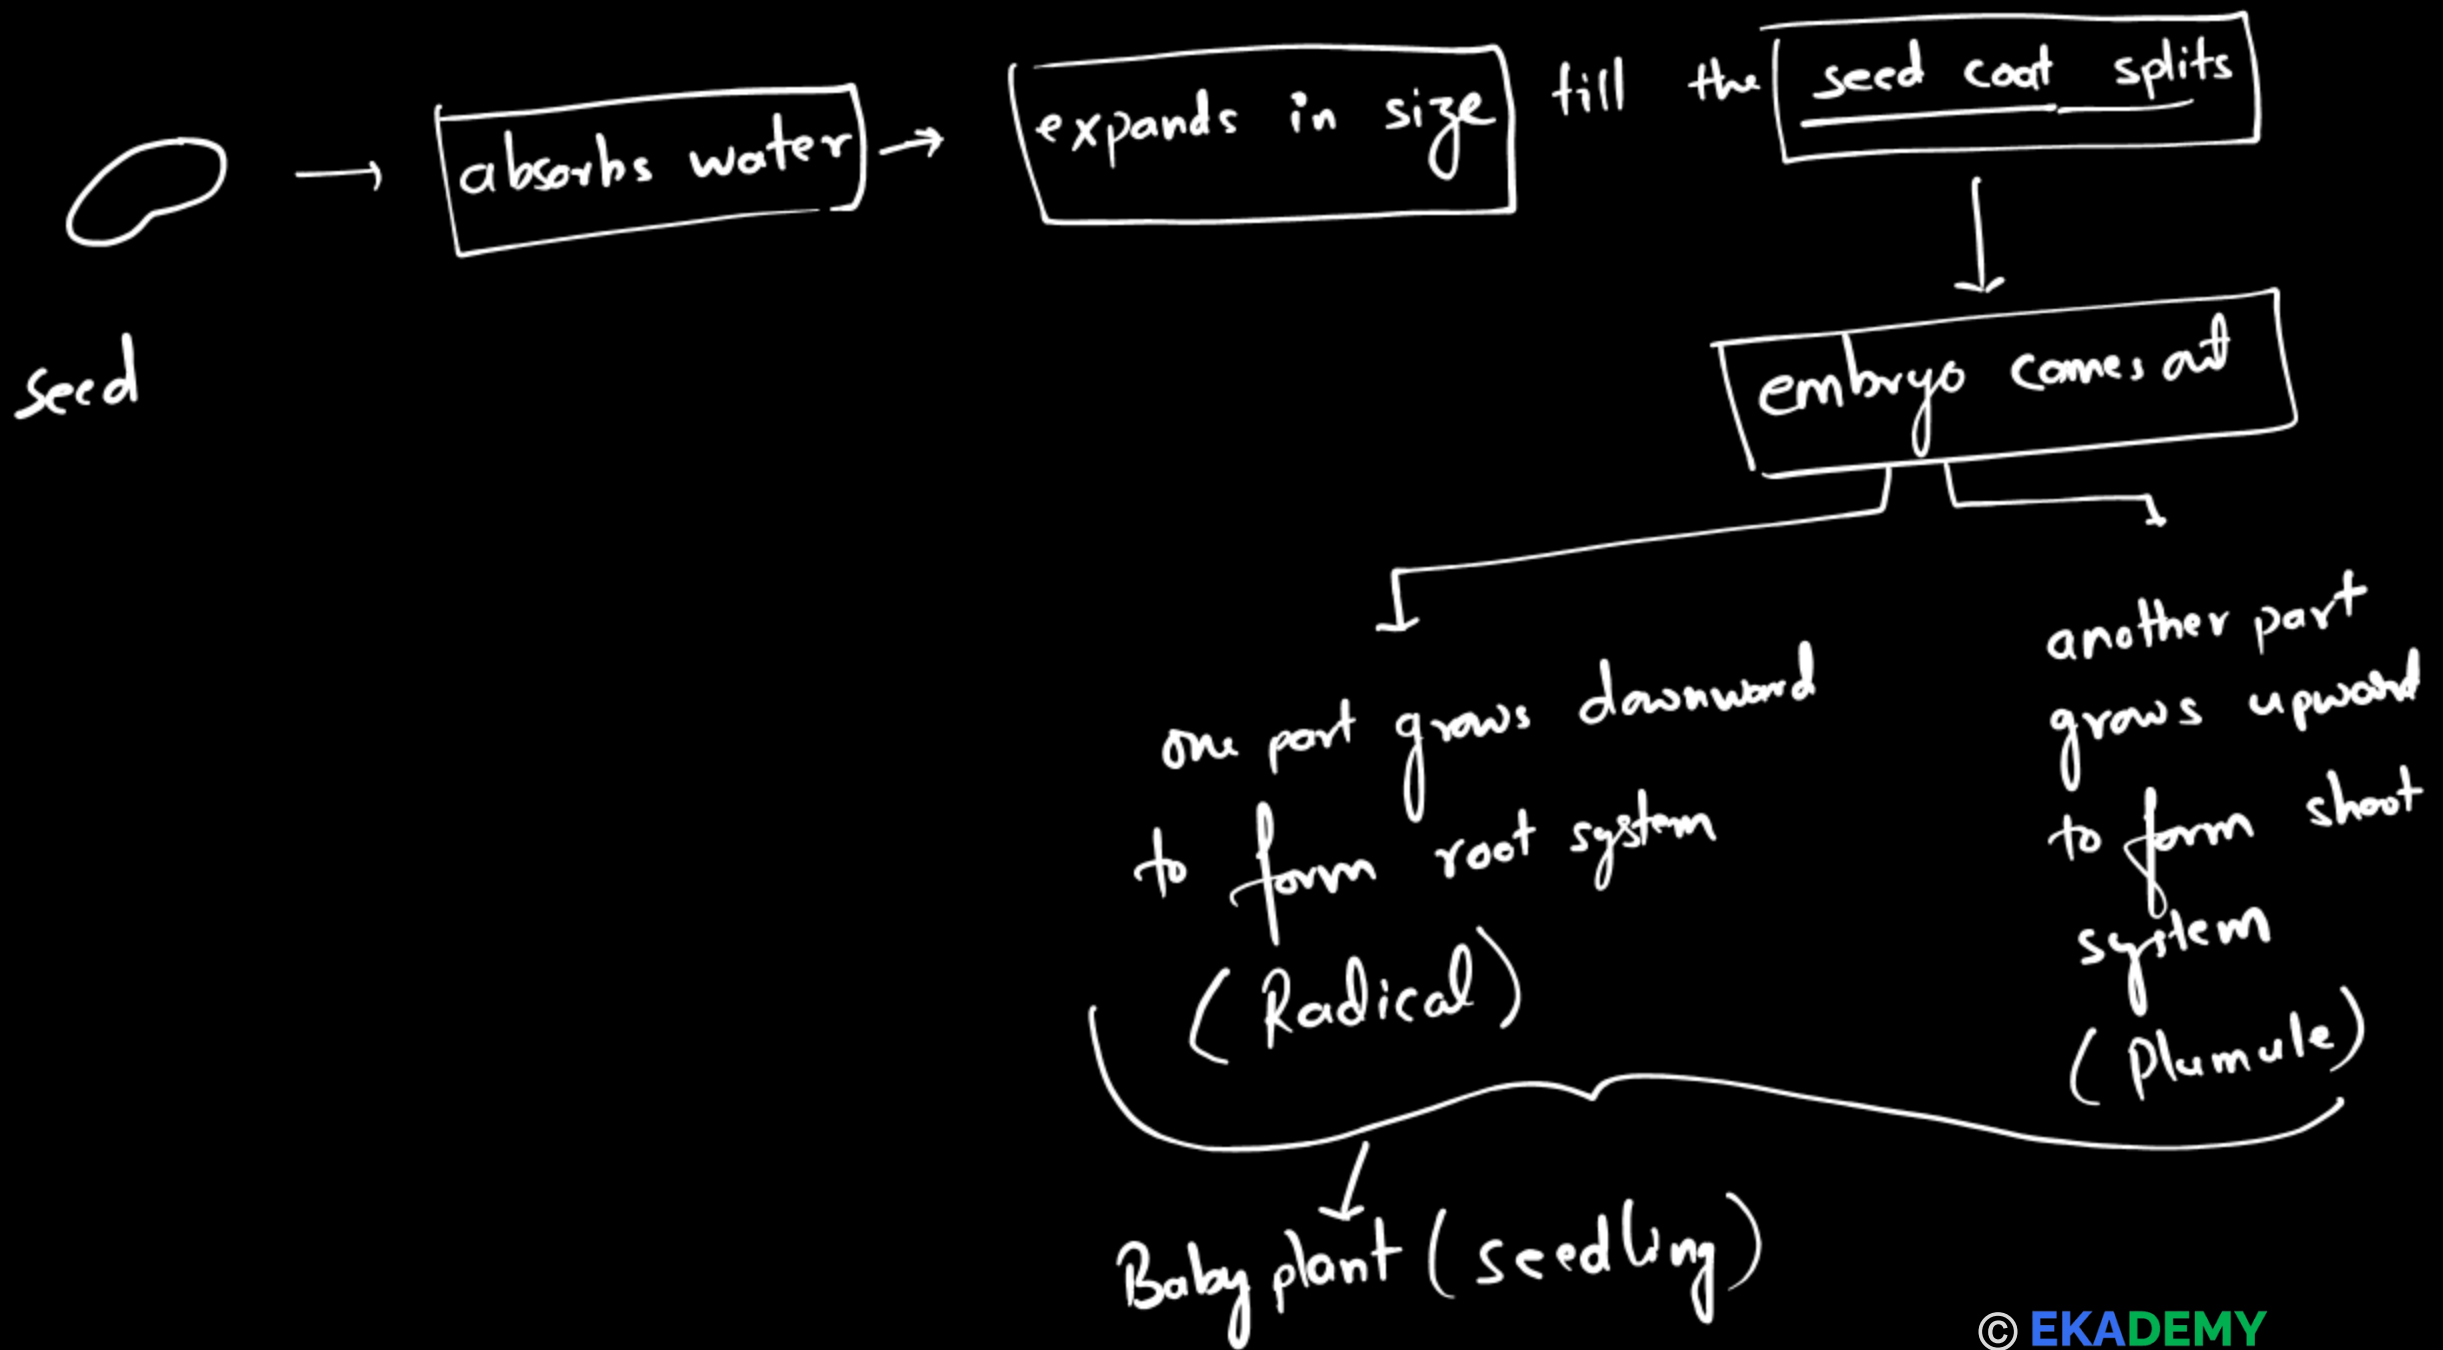 seed
absorbs water
expands in size till the seed coat splits
embryo comes out
one part grows downward
to form root system
(Radical)
another part
grows upward
to form shoot
system
(Plumule)
Baby plant (seedling)
© EKADEMY